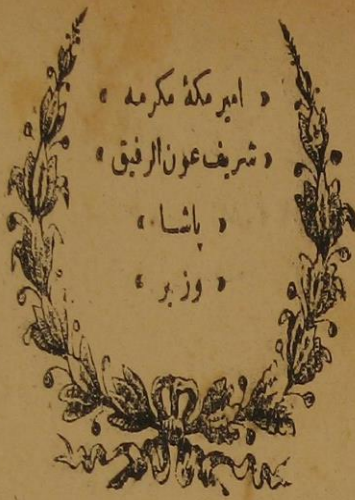 « امير مكهٔ مكرمه »
« شريف عون الرفيق »
« پاشا »
« وزير »